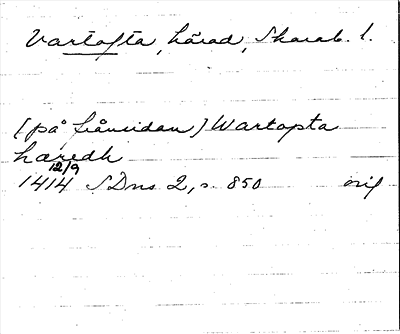 Vartofta, härad, Skarab. l.
(på frånsidan) Wartopta
hæredh
12/9
1414 SDns 2, s. 850 orig